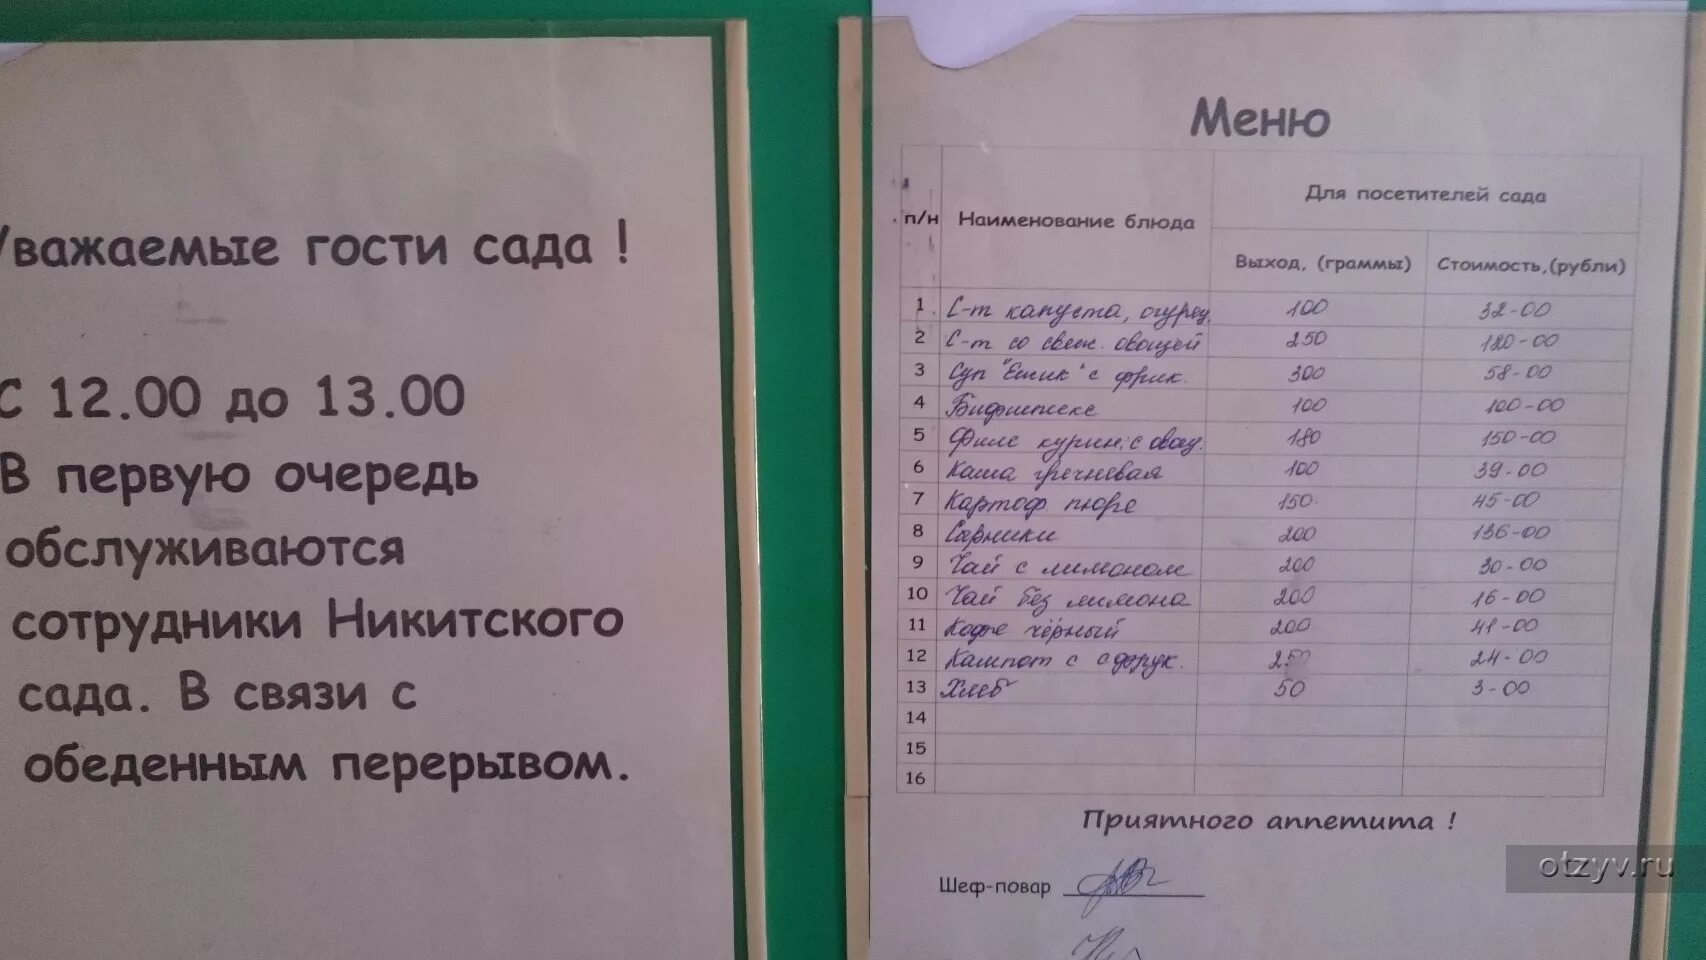 Уважаемые гости сада !
С 12.00 до 13.00
В первую очередь
обслуживаются
сотрудники Никитского
сада. В связи с
обеденным перерывом.
Меню
п/н Наименование блюда Для посетителей сада
Выход, (граммы) Стоимость,(рубли)
1 С-т капуста, огурец. 100 32-00
2 С-т со свеж. овощей 250 120-00
3 Суп "Ёжик" с фрик. 300 58-00
4 Бифштекс 100 100-00
5 Филе курин. с овощ. 180 150-00
6 Каша гречневая 100 39-00
7 Картоф. пюре 150 45-00
8 Сырники 200 136-00
9 Чай с лимоном 200 30-00
10 Чай без лимона 200 16-00
11 Кофе чёрный 200 41-00
12 Компот с 24-00
13 Хлеб 50 3-00
14
15
16
Приятного аппетита !
Шеф-повар
otzyv.ru